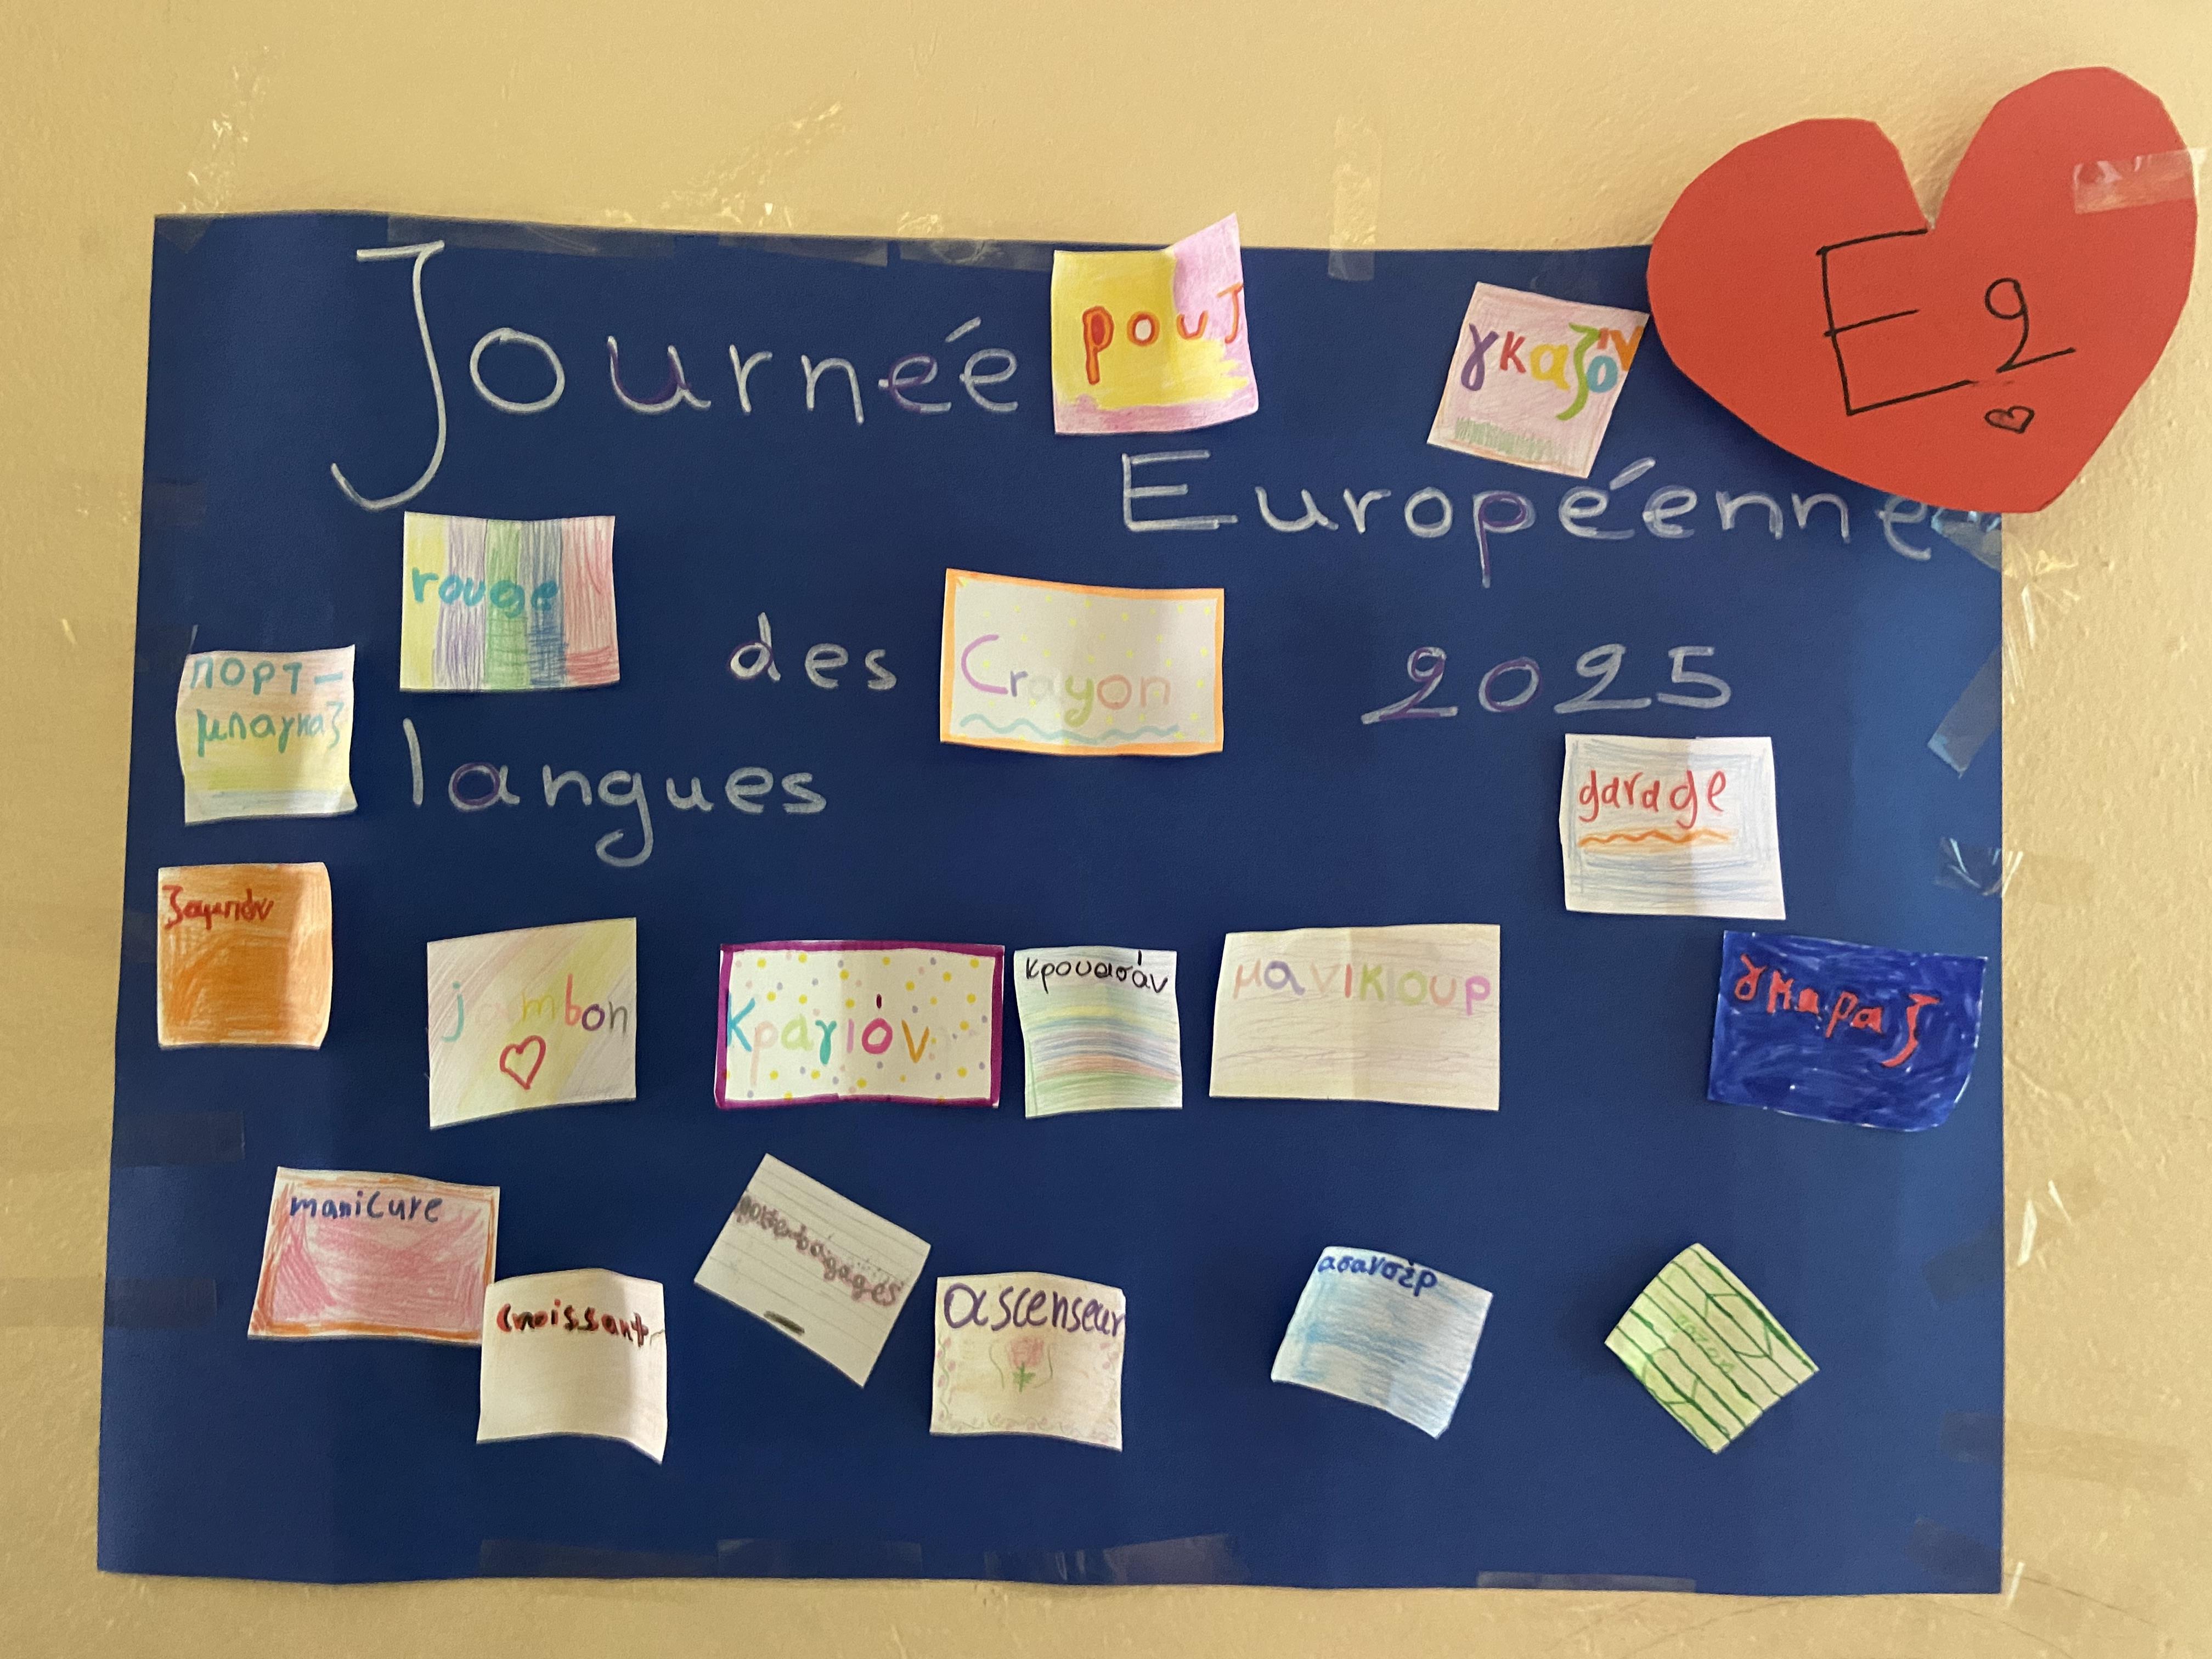 Journée
ρουζ
γκαζόν
E2
Européenne
rouge
des
Crayon
2025
πορτ-
μπαγκαζ
langues
garage
ζαμπόν
jambon
κραγιόν
κρουασάν
μανικιουρ
γκαραζ
manicure
croissant
porte-bagages
ascenseur
ασανσέρ